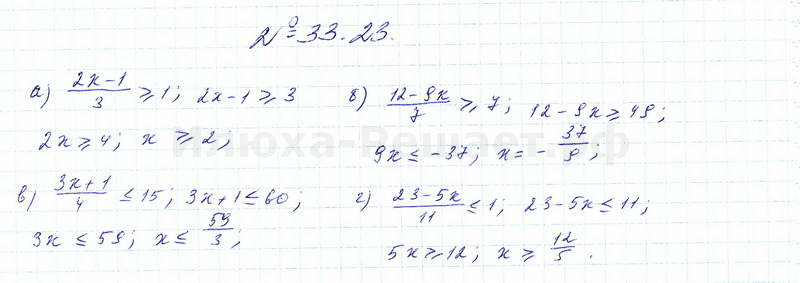 № 33.23.
а) (2x-1)/3 ≥ 1; 2x-1 ≥ 3
2x ≥ 4; x ≥ 2;
б) (12-9x)/7 ≥ 7; 12-9x ≥ 49;
9x ≤ -37; x = -37/9;
в) (3x+1)/4 ≤ 15; 3x+1 ≤ 60;
3x ≤ 59; x ≤ 59/3;
г) (23-5x)/11 ≤ 1; 23-5x ≤ 11;
5x ≥ 12; x ≥ 12/5.
Илюха-Решает.рф